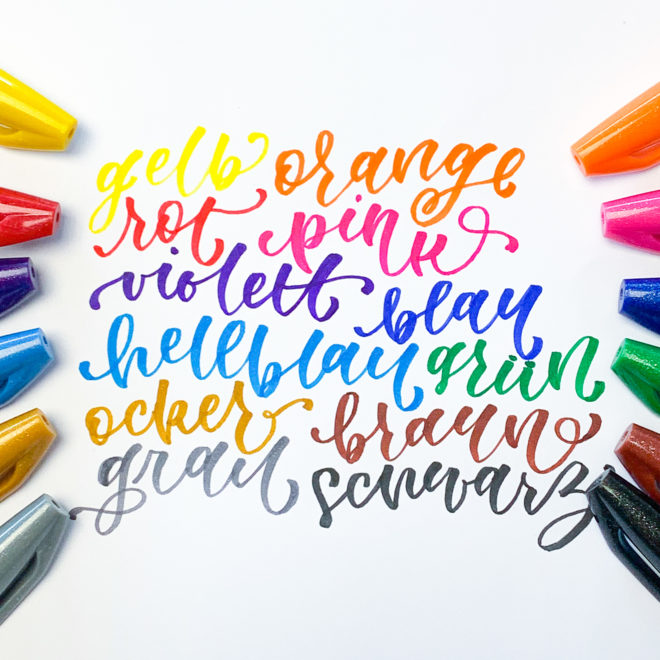 gelb orange
rot pink
violett blau
hellblau grün
ocker braun
grau schwarz